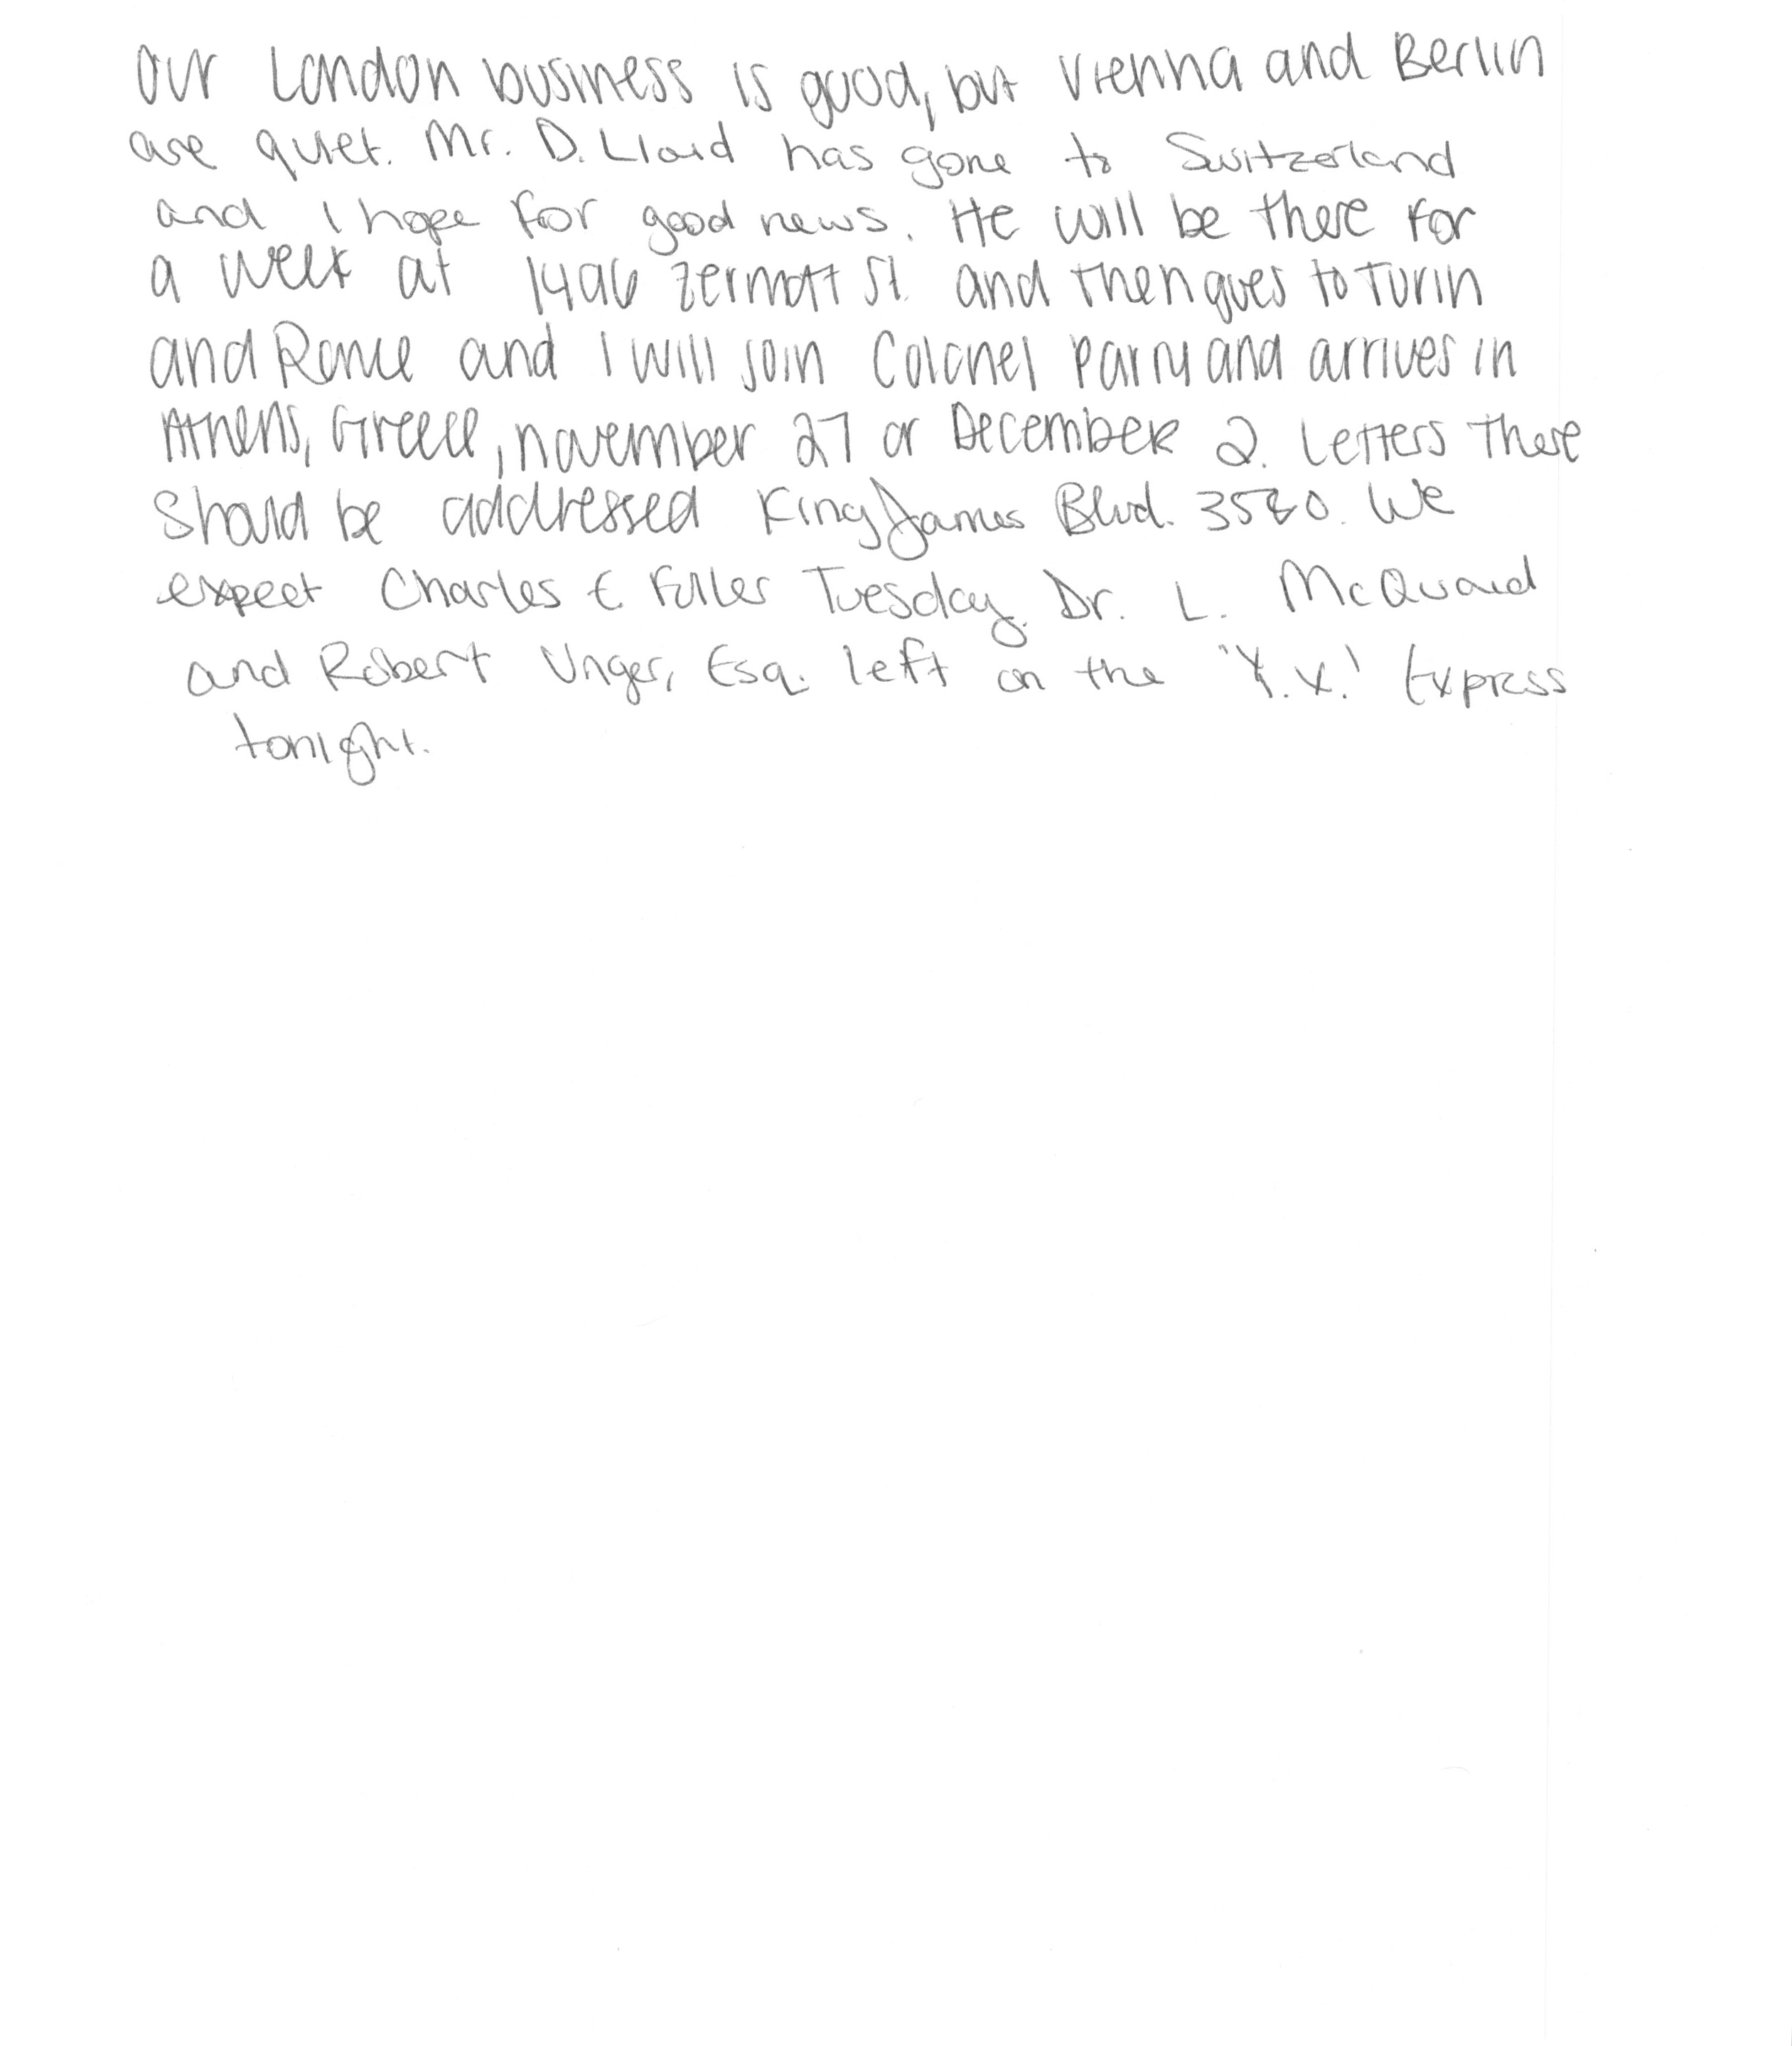 Our London business is good, but Vienna and Berlin
are quiet. Mr. D. Lloid has gone to Switzerland
and I hope for good news. He will be there for
a week at 1496 Zermott St. and then goes to Turin
and Rome and I will join Colonel Parry and arrives in
Athens, Greece, november 27 or December 2. Letters there
should be addressed King James Blvd. 3580. We
expect Charles E. Fuller Tuesday. Dr. L. McQuaid
and Robert Unger, Esq. left on the "Y.X." Express
tonight.